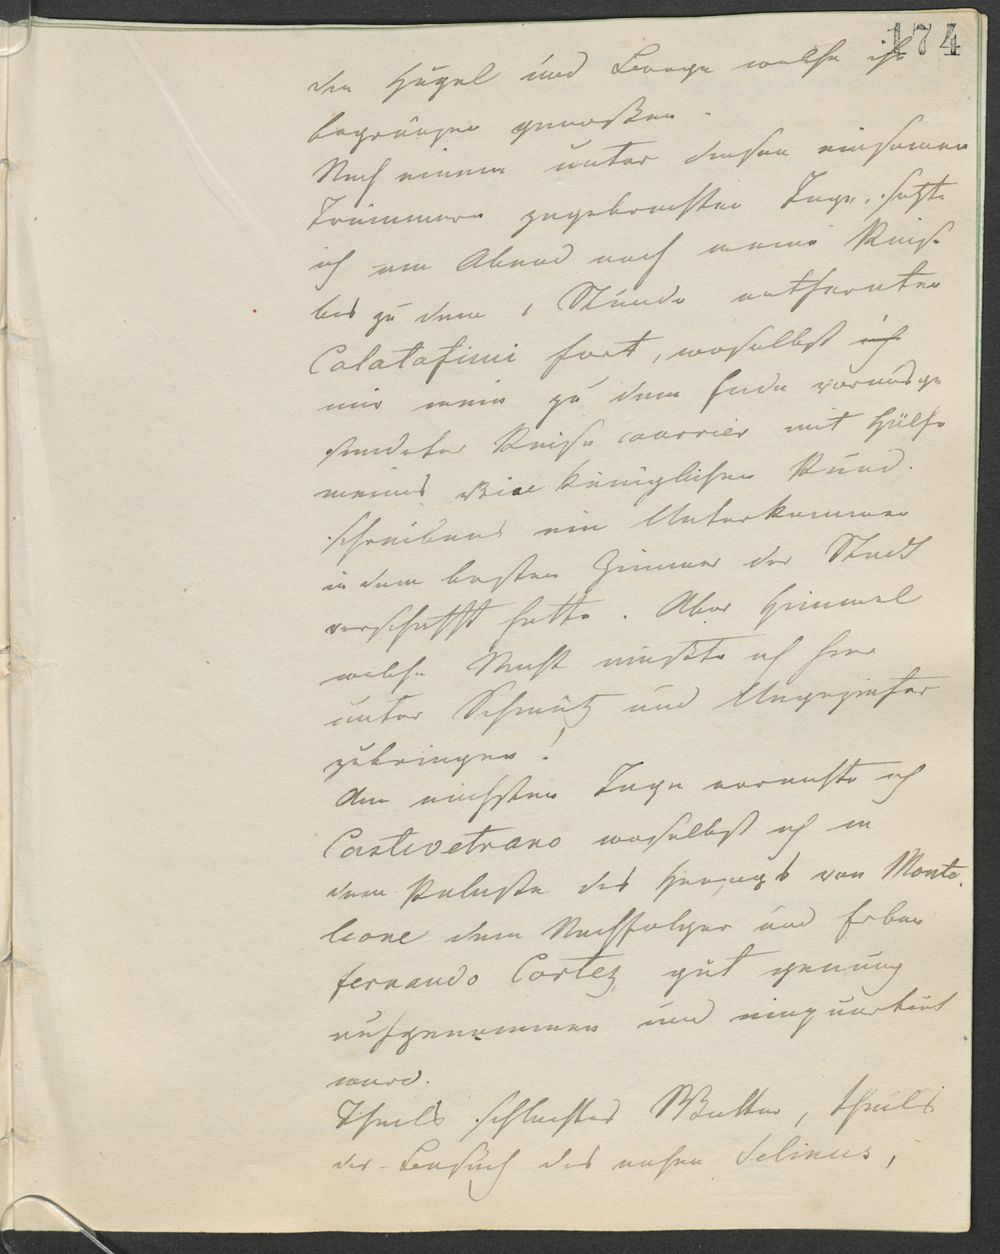 174
den Hügel und Berge welche ihn
begränzen genoßen.
Nach einem unter diesen einsamen
Trümmern zugebrachten Tage, setzte
ich am Abend noch meine Reise
bis zu dem 1 Stunde entfernten
Calatafimi fort, woselbst ich
mir mein zu dem Ende vorausge
sendeter Reise courrier mit Hülfe
meines Vice königlichen Rund
schreibens ein Unterkommen
in dem besten Zimmer der Stadt
verschafft hatte. Aber Himmel
welche Nacht mußte ich hier
unter Schmutz und Ungeziefer
zubringen!
Am nächsten Tage erreichte ich
Castelvetrano woselbst ich in
dem Palaste des Herzogs von Monte
leone dem Nachfolger und Erben
Fernando Cortez gut genung
aufgenommen und einquartirt
ward.
Theils schlechtes Wetter, theils
der Besuch des nahen Selinus,